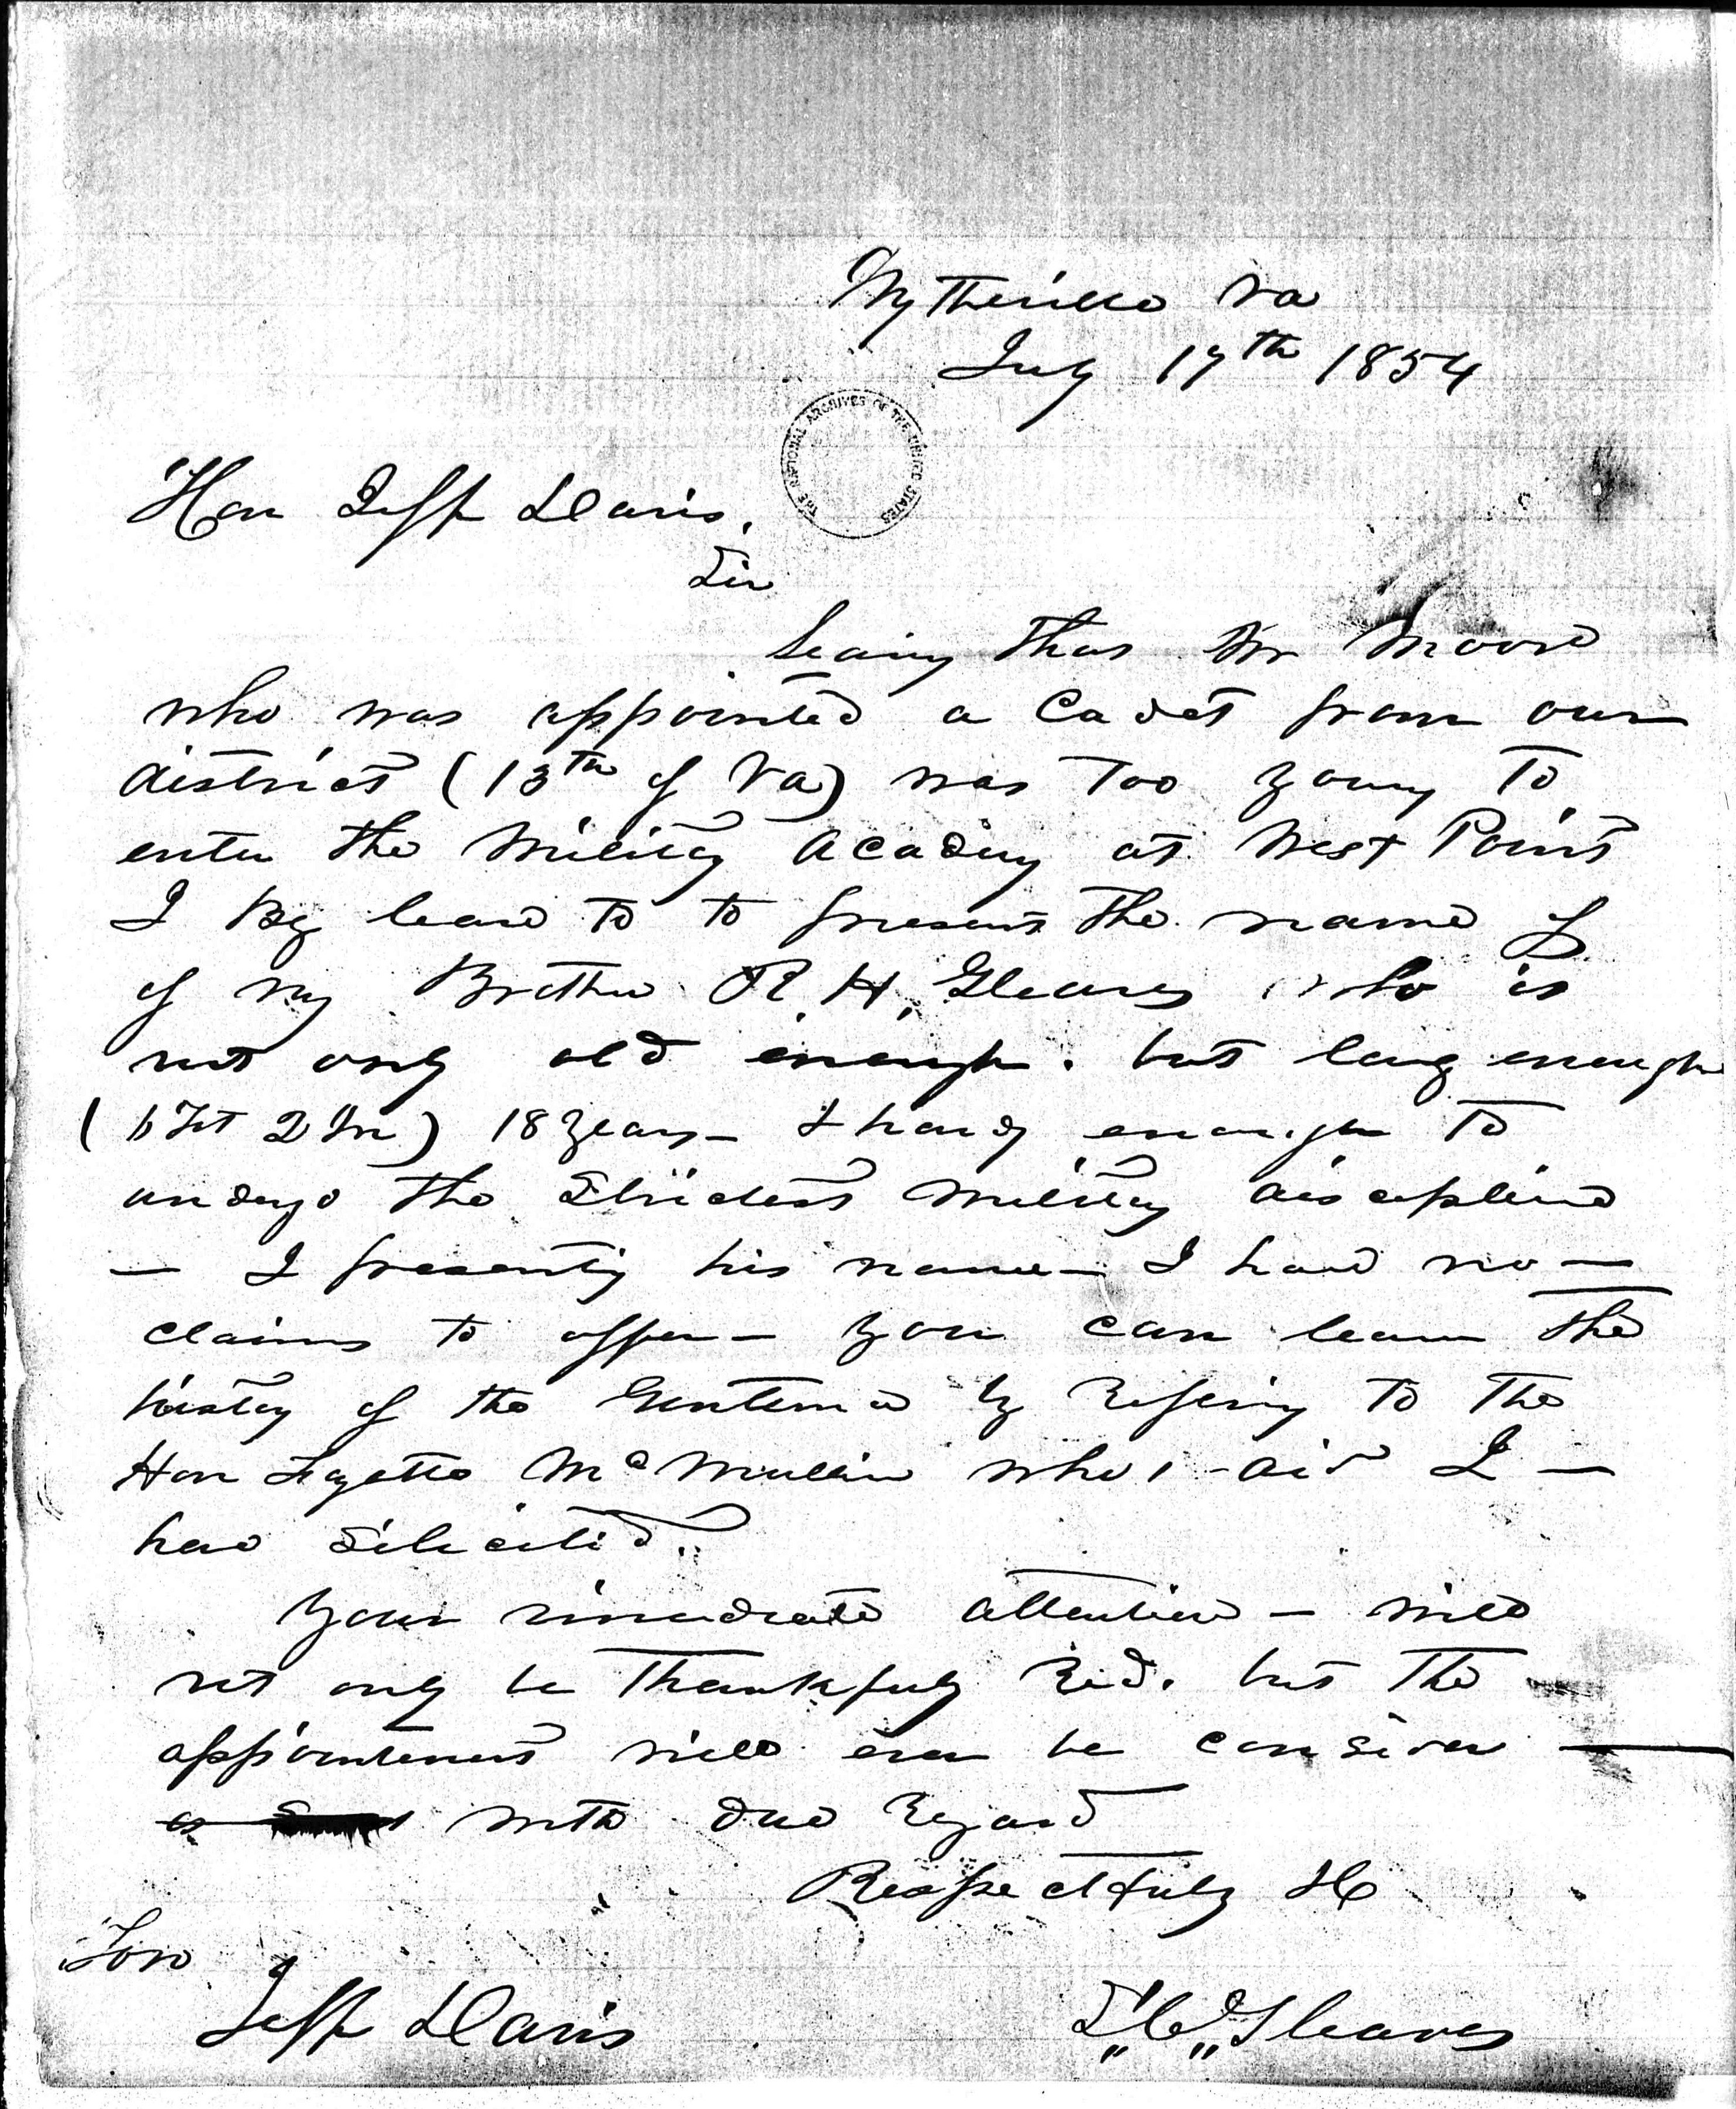 Wytheville Va
July 17th 1854
THE NATIONAL ARCHIVES OF THE UNITED STATES
Hon Jeff Davis.
Sir
Seeing that Mr Moore
who was appointed a Cadet from our
district (13th of Va) was too young to
enter the Military Academy at West Point
I beg leave to to present the name of
of my Brother R. H. Gleaves who is
not only old enough. but long enough
(6 Ft 2 In) 18 years - & hardy enough to
undergo the Strictest Military discipline
- I presenting his name - I have no -
claims to offer - you can learn the
history of the Gentleman by Refering to the
Hon Fayette McMullin whose aid I -
have Solicited.
Your immediate attention - will
not only be thankfully Recd. but the
appointment will ever be consider
as with due Regard
Respectfully &c
Hon
Jeff Davis
S. C. Gleaves